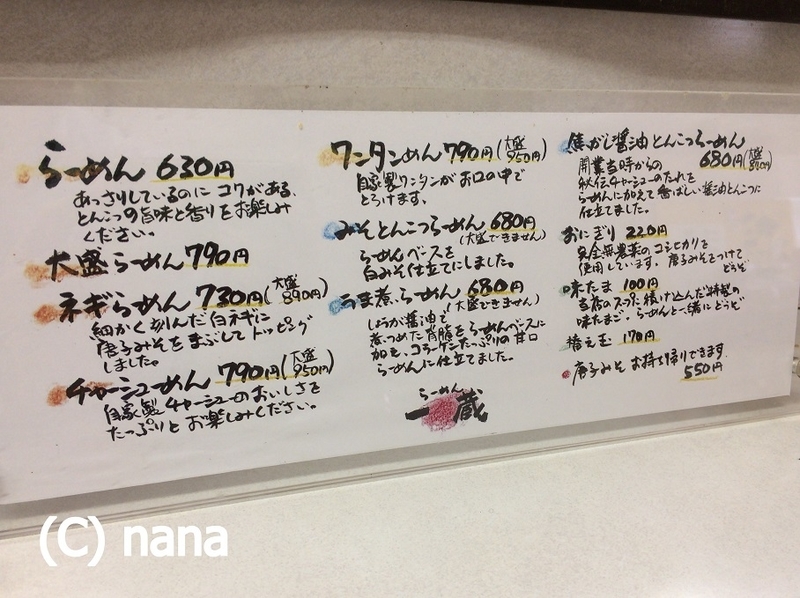 らーめん 630円
あっさりしているのに コクがある、
とんこつの旨味と香りをお楽しみ
ください。
大盛らーめん 790円
ネギらーめん 730円(大盛890円)
細かく刻んだ白ネギに
唐子みそをまぶしてトッピング
しました。
チャーシューめん 790円(大盛950円)
自家製チャーシューのおいしさを
たっぷりとお楽しみください。
ワンタンめん 790円(大盛950円)
自家製ワンタンがお口の中で
とろけます。
みそとんこつらーめん 680円
(大盛できません)
らーめんベースを
白みそ仕立てにしました。
うま煮らーめん 680円
(大盛できません)
しょうが醤油で
煮つめた背脂をらーめんベースに
加え、コラーゲンたっぷりの甘口
らーめんに仕立てました。
らーめん
一蔵
焦がし醤油とんこつらーめん
680円(大盛840円)
開業当時からの
秘伝チャーシューのたれを
らーめんに加えて香ばしい醤油とんこつに
仕立てました。
おにぎり 220円
完全無農薬のコシヒカリを
使用しています。唐子みそをつけて
どうぞ
味たま 100円
当店のスープに漬け込んだ特製の
味たまご。らーめんと一緒にどうぞ
替え玉 170円
唐子みそ お持ち帰りできます。
550円
(C) nana